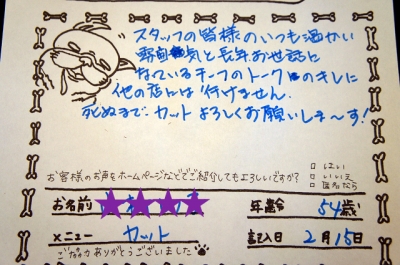 スタッフの皆様のいつも温かい
雰囲気と長年お世話に
なているチーフのトークのキレに
他の店には行けません。
死ぬまでカットよろしくお願いしま〜す!
お客様のお声をホームページなどでご紹介してもよろしいですか?
□ はい
□ いいえ
□ 匿名なら
お名前
年齢 54歳
メニュー カット
記入日 2月15日
ご協力ありがとうございました